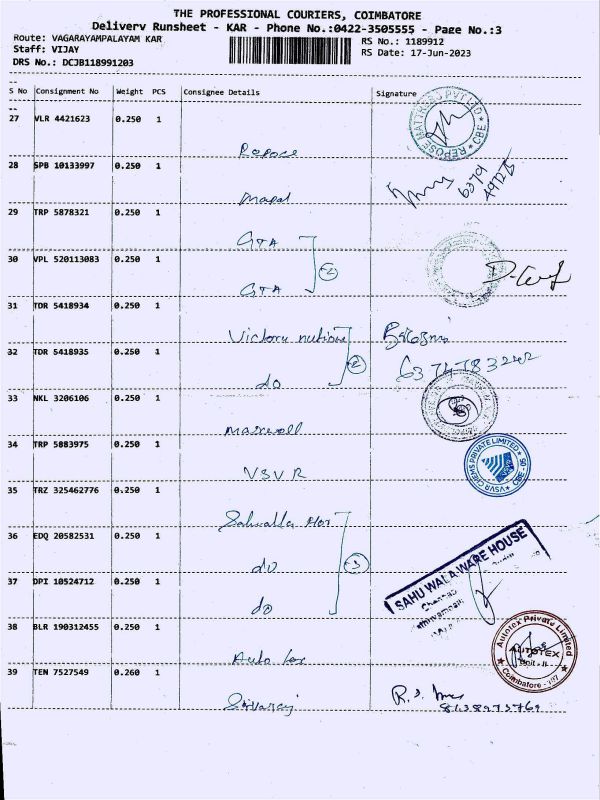 THE PROFESSIONAL COURIERS, COIMBATORE
Delivery Runsheet - KAR - Phone No.:0422-3505555 - Page No.:3
Route: VAGARAYAMPALAYAM KAR
RS No.: 1189912
Staff: VIJAY
RS Date: 17-Jun-2023
DRS No.: DCJB118991203
S No Consignment No Weight PCS Consignee Details Signature
27 VLR 4421623 0.250 1
REPOSE MATTRESS PVT LTD CBE
Repose
28 SPB 10133997 0.250 1
6379
Mapal
29 TRP 5878321 0.250 1
GTA
30 VPL 520113083 0.250 1
2
GTA
31 TDR 5418934 0.250 1
Victory
32 TDR 5418935 0.250 1
2
6374783242
do
33 NKL 3206106 0.250 1
Maxwell
34 TRP 5883975 0.250 1
VSVR CHEMS PRIVATE LIMITED CBE - 05
VSVR
35 TRZ 325462776 0.250 1
36 EDQ 20582531 0.250 1
SAHU WALA WARE HOUSE
do
3
37 DPI 10524712 0.250 1
do
38 BLR 190312455 0.250 1
Autotex Private Limited
AUTOTEX
Unit - II
Coimbatore - 107
Auto tex
39 TEN 7527549 0.260 1
R.S.
8138973769
Sivaraj